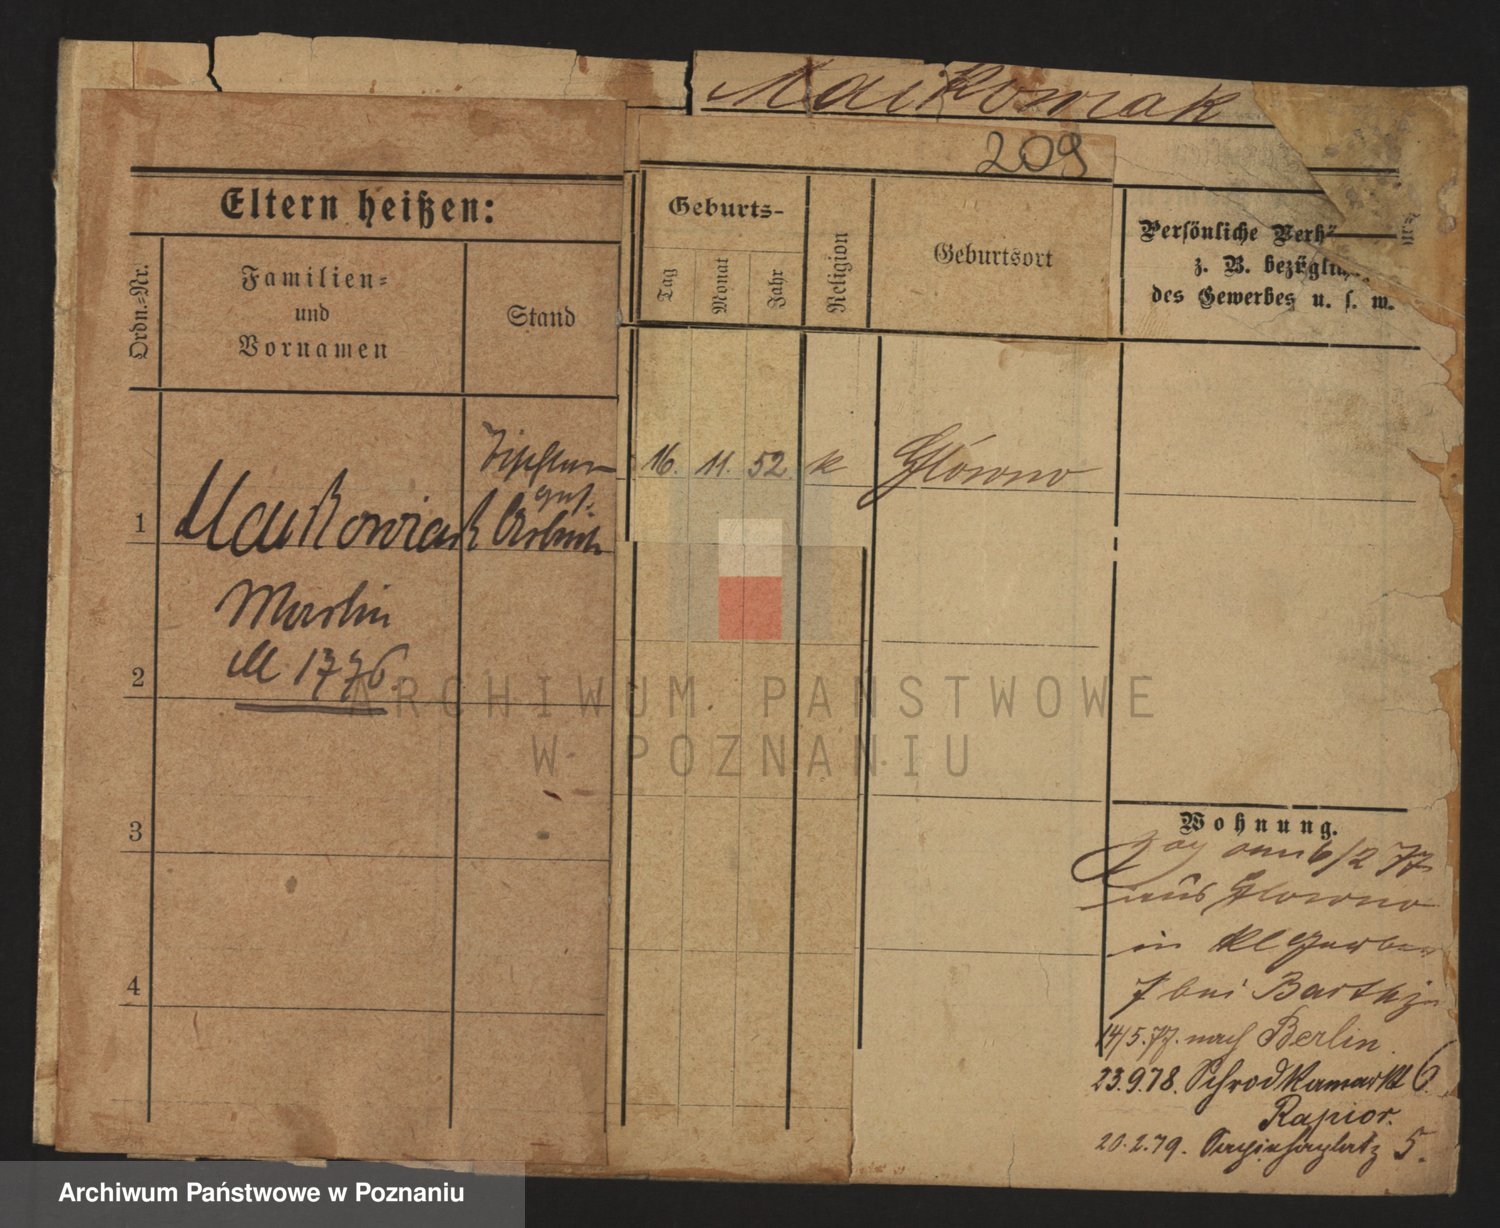 Maikowiak
209
Eltern heißen:
Ordn.=Nr.
Familien=
und
Vornamen
Stand
Geburts-
Tag
Monat
Jahr
Religion
Geburtsort
Persönliche Verh
z. B. bezügli
des Gewerbes u. s. w.
1
Maikowiak
16. 11. 52 k Główno
Martin
2
M 1776.
3
4
Wohnung.
Zog am 6/2 77
aus Glowno
in kl Gerber
7 bei
14/5.77. nach Berlin.
23.9.78. Schrodkamarkt 6
Rapior.
20.2.79. 5.
ARCHIWUM PAŃSTWOWE
W POZNANIU
Archiwum Państwowe w Poznaniu